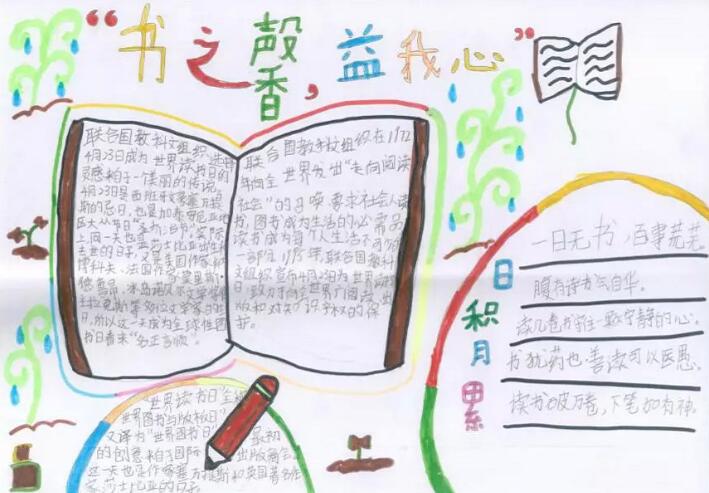 “书之馨香，益我心”
联合国教科文组织选择
4月23日成为世界读书日的
灵感来自于一个美丽的传说。
4月23日是西班牙
斯的忌日，也是加泰罗尼亚地
区大众节日“圣乔治节”。实际
上同一天也是莎士比亚出生和
去世的日子，又是美国作家纳
博科夫、法国作家莫里斯·
德鲁昂、冰岛诺贝尔文学奖得
主拉克斯内斯等多位文学家的生
日，所以这一天成为全球性图
书日看来“名正言顺”。
联合国教科文组织在1972
年向全世界发出“走向阅读
社会”的召唤，要求社会人人读
书，图书成为生活的必需品，
读书成为每个人生活不可分的
一部分。1995年，联合国教科
文组织宣布4月23日为世界读书
日，致力于向全世界推广阅读、出
版和对知识产权的保
护。
“世界读书日”全称
“世界图书与版权日”
又译为“世界图书日”，最初
的创意来自于国际出版商会。
这一天也是作家塞万提斯和英国著名作
家莎士比亚的日子。
日积月累
一日无书，百事荒芜。
腹有诗书气自华。
读几卷书，养一颗宁静的心。
书犹药也，善读可以医愚。
读书破万卷，下笔如有神。